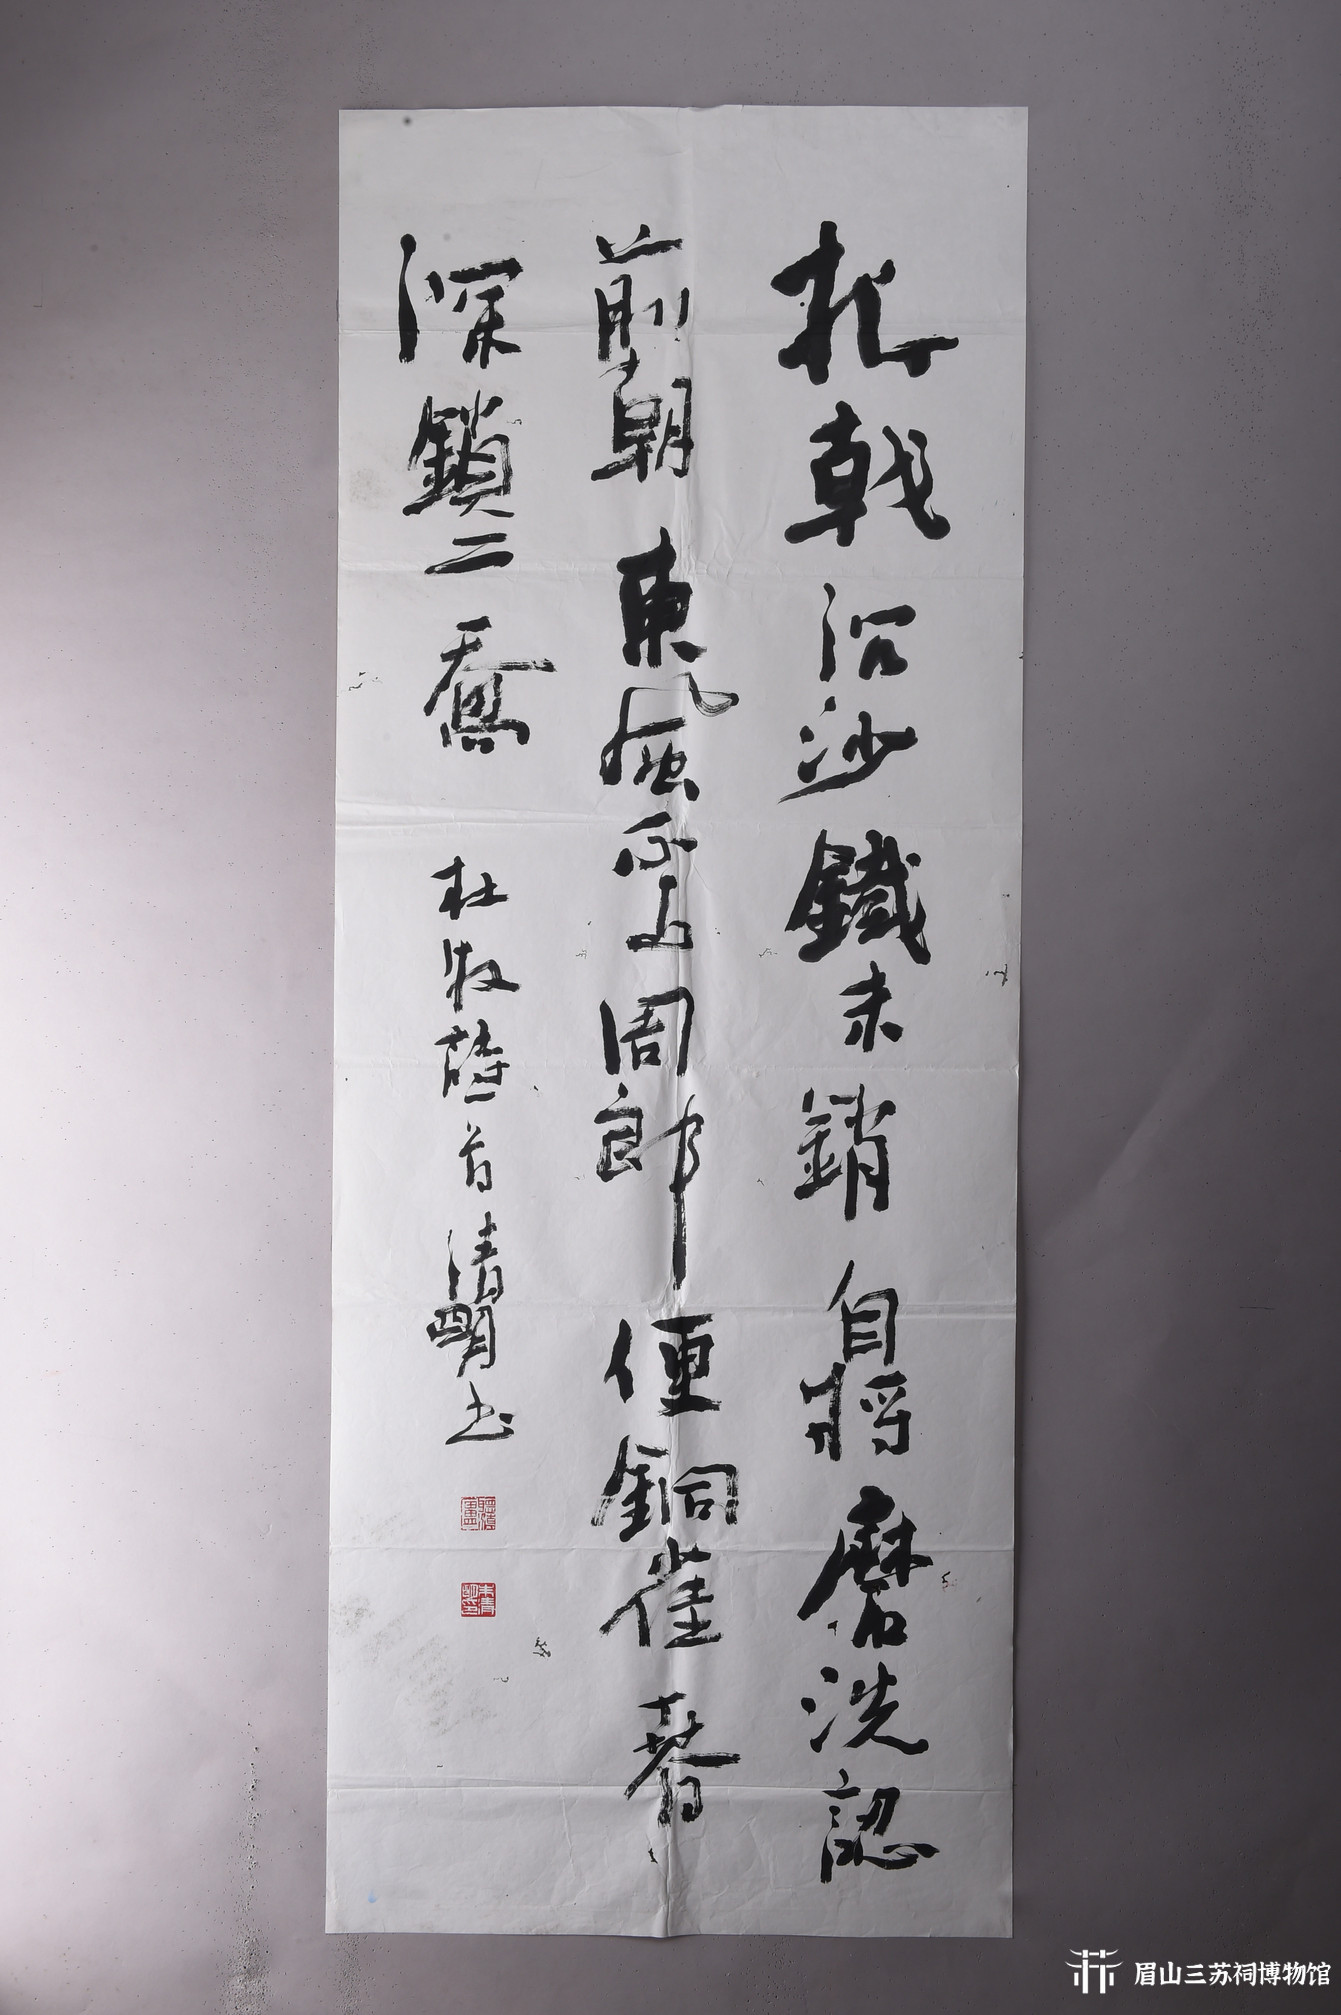 折戟沉沙鐵未銷自將磨洗認
前朝東風不与周郎便銅雀春
深鎖二喬 杜牧詩一首清明书
眉山三苏祠博物馆